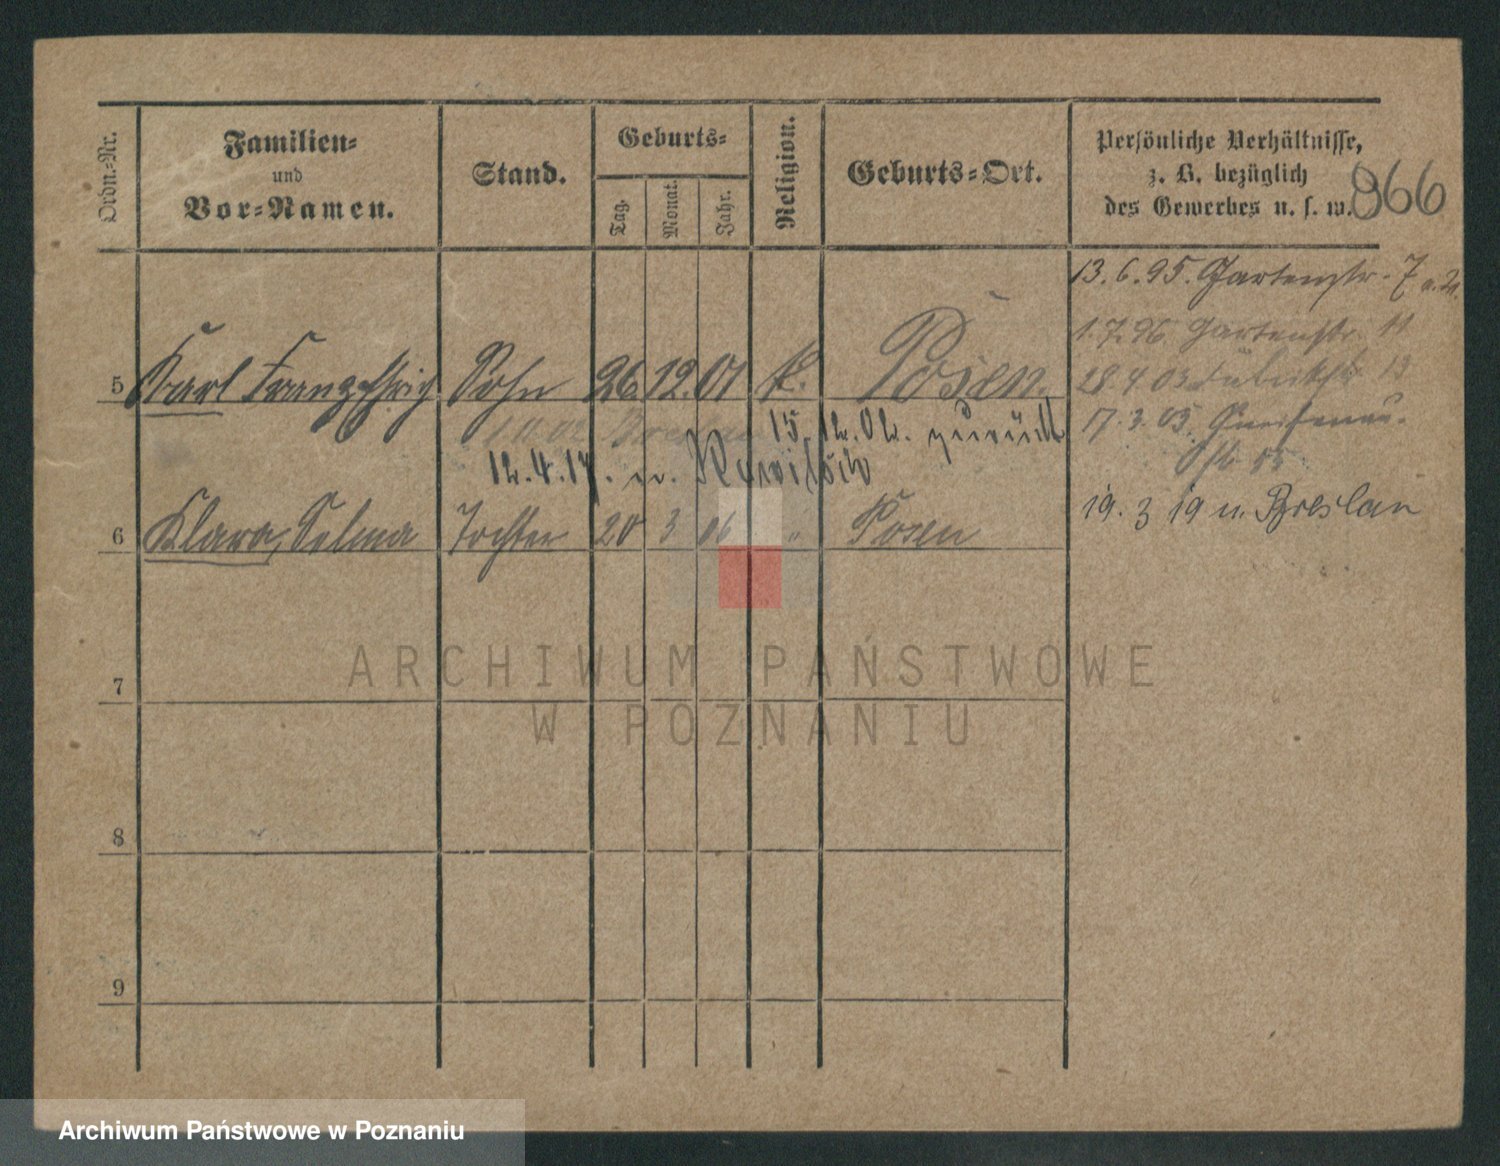 Ordn.-Nr.
Familien-
und
Vor-Namen.
Stand.
Geburts-
Tag.
Monat.
Jahr.
Religion.
Geburts-Ort.
Persönliche Verhältnisse,
z. B. bezüglich
des Gewerbes u. s. w.
966
13. 6. 95. Gartenstr. 7
1. 7. 96 Gartenstr. 11
28. 4. 03 13
17. 3. 05. Gneisenau-
19. 3 19 n. Breslau
5 Karl Sohn 26 12. 01 k. Posen.
1. 11. 02 Breslau 15. 12. 02. zurück
12. 4. 17. n.
6 Klara, Selma Tochter 20 3 06 " Posen
7
8
9
ARCHIWUM PAŃSTWOWE
W POZNANIU
Archiwum Państwowe w Poznaniu